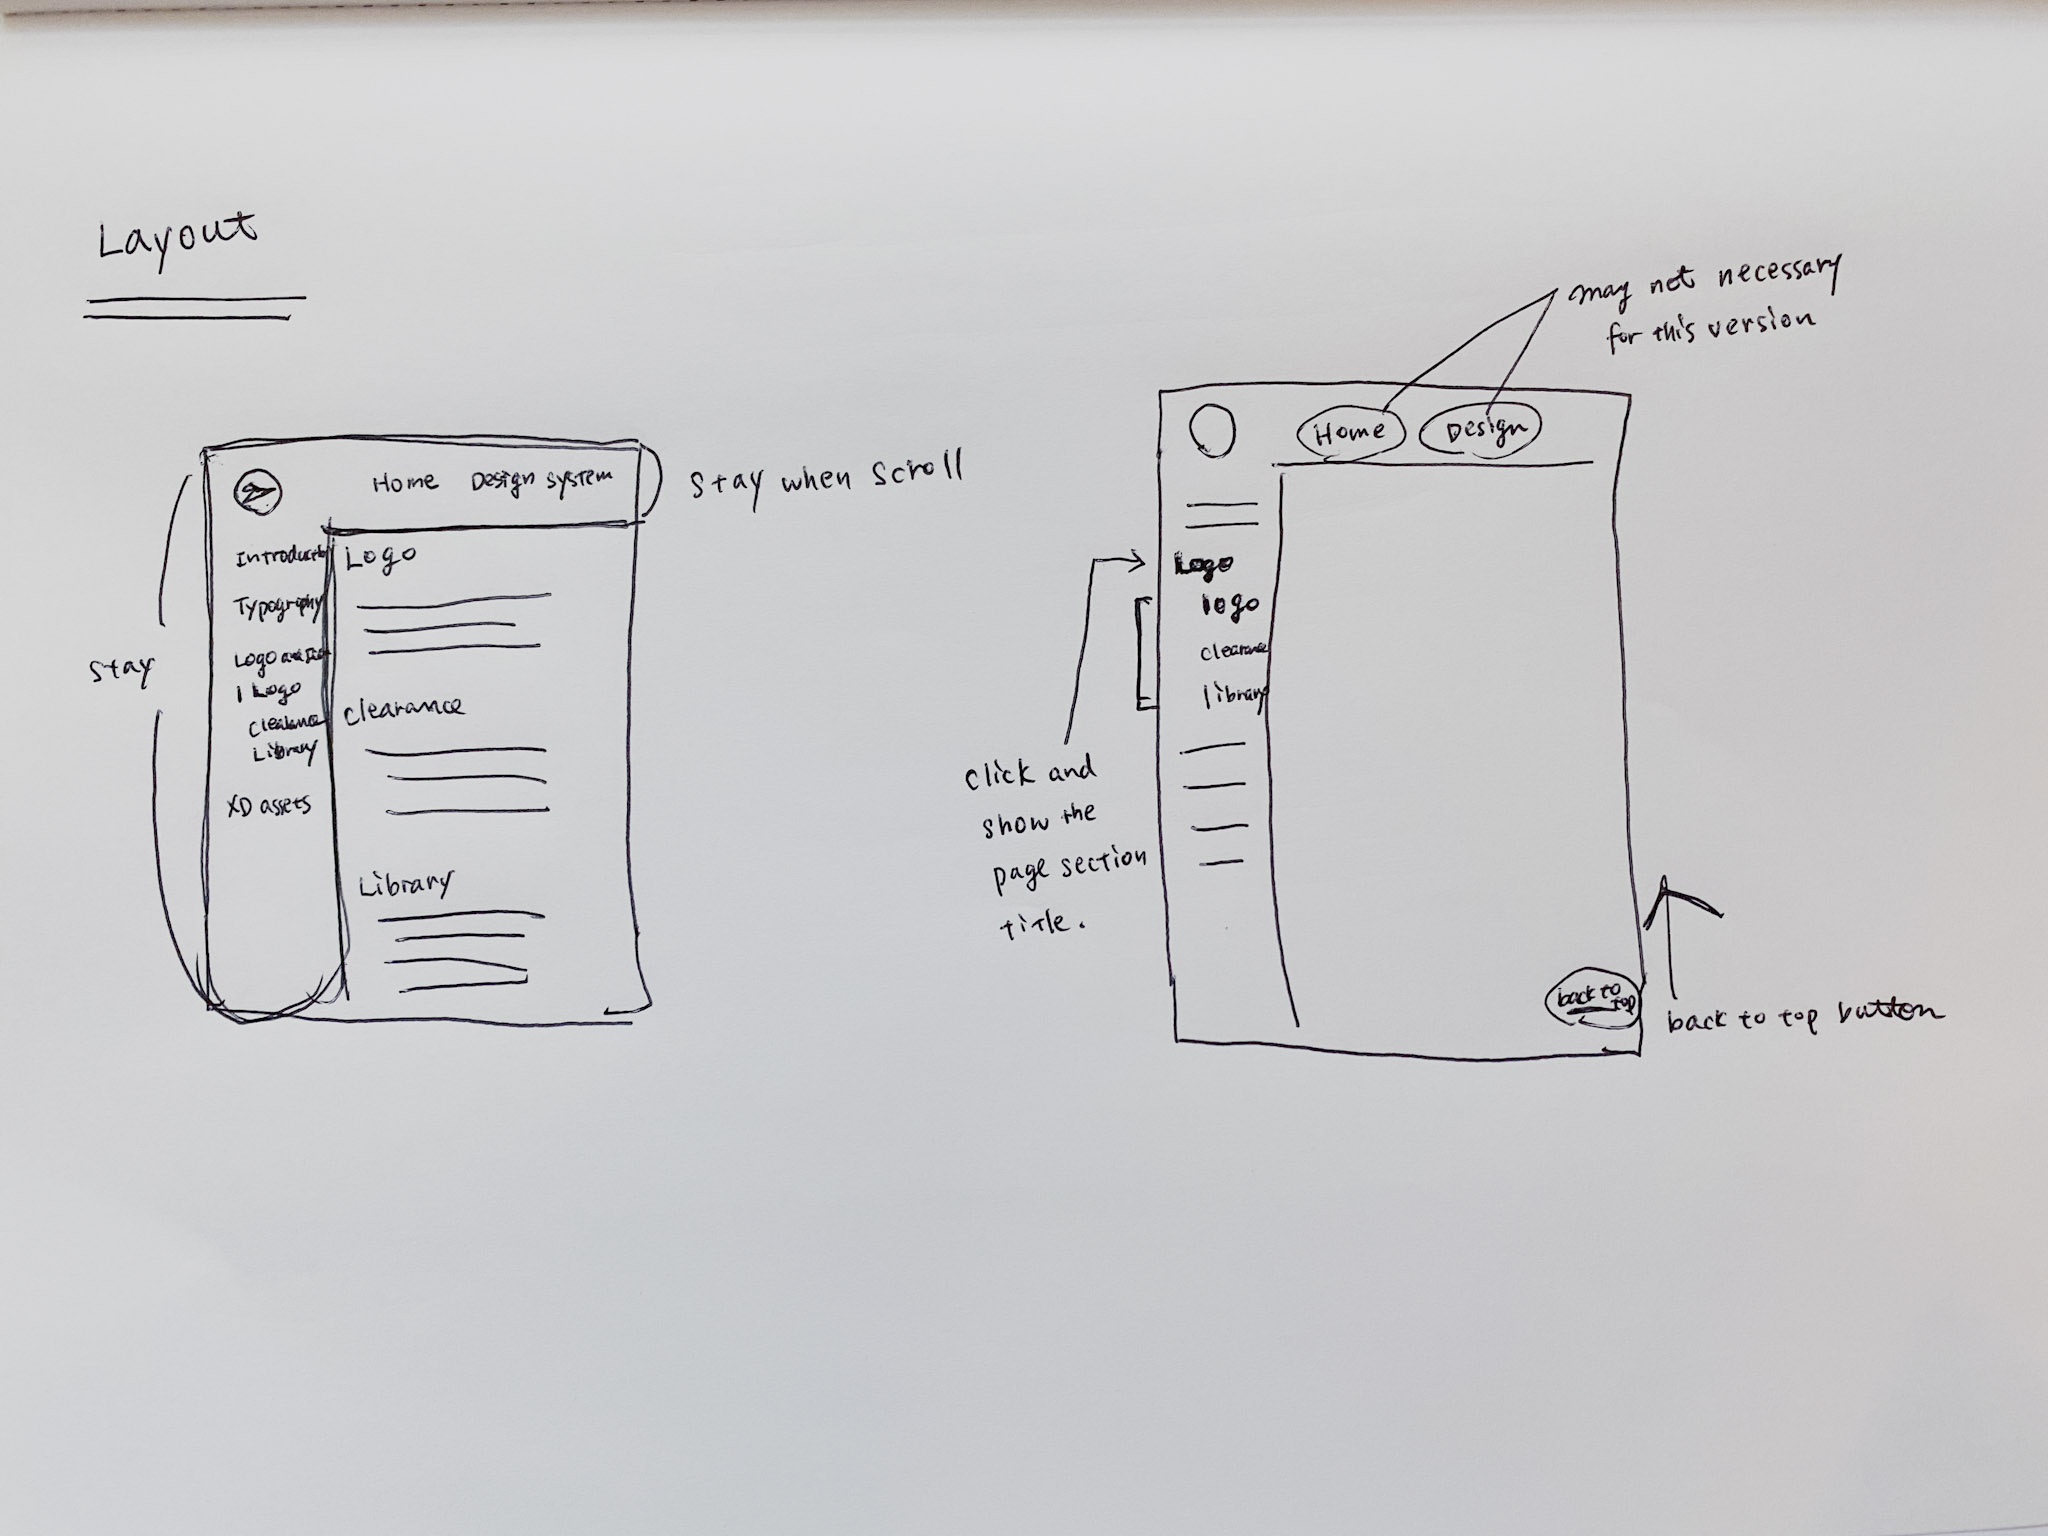 Layout
Home Design system
stay when scroll
stay
Typography
Logo
Clearance
Library
XD assets
Logo
Clearance
Library
may not necessary
for this version
Home Design
Logo
logo
clearance
library
click and
show the
page section
title.
back to
top
back to top button